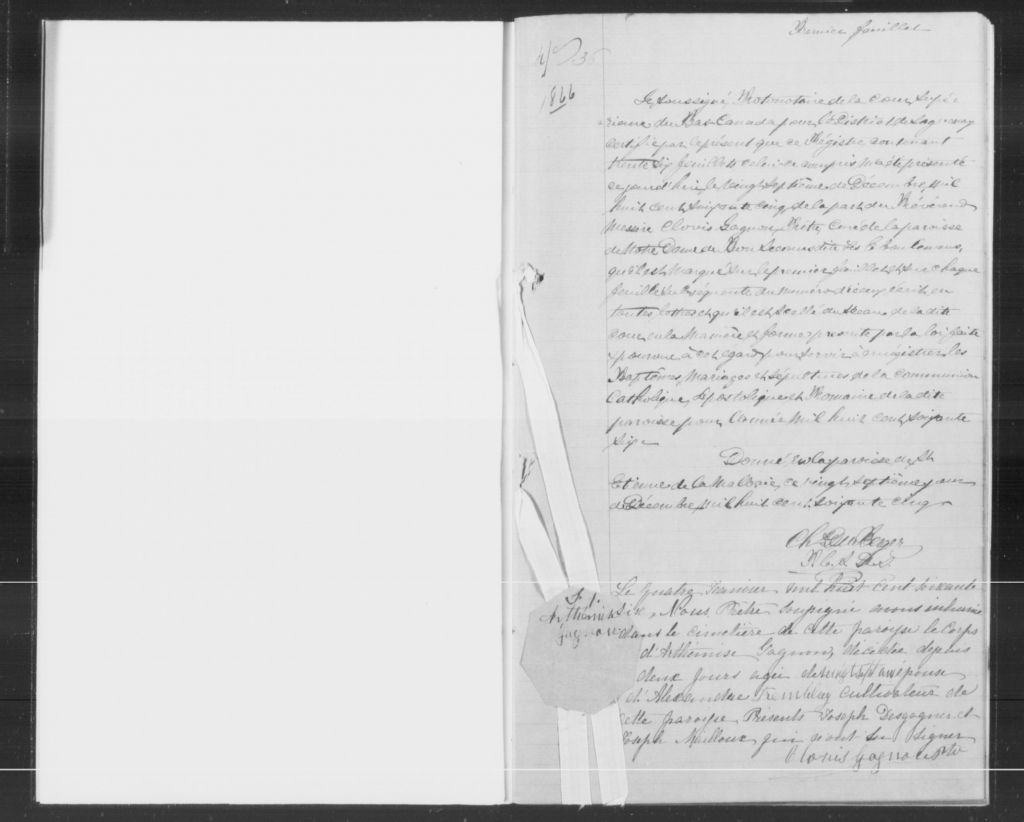 Premier feuillet
36
1866
Je soussigné Protonotaire de la Cour Supé
rieure du Bas-Canada pour le District de Saguenay
certifie par le présent que ce Régistre contenant
trente six feuillets celui-ci compris m'a été présenté
ce jourd'hui le vingt septième de Décembre, Mil
huit cent soixante cinq, de la part du Révérend
Messire Clovis Gagnon Prêtre, Curé de la paroisse
de Notre Dame de Bon Secours dite les Eboulements,
qu'il est Marqué sur le premier feuillet et sur chaque
feuillet subséquent du Numéro d'iceux écrit en
toutes lettres et qu'il est scellé du Sceau de la dite
Cour en la Manière et forme prescrite par la loi faite
et pourvue à cet égard pour servir à enrégistrer les
Baptêmes, Mariages et Sépultures de la Communion
Catholique, Apostolique et Romaine de la dite
paroisse pour l'année Mil huit cent soixante
six
Donné en la paroisse de St
Etienne de la Malbaie, ce vingt septième jour
de Décembre, Mil huit cent soixante cinq
Ch Du Berger
P. C. S. D. S.
S. 1.
Arthémise
Gagnon
Le quatre Janvier mil huit cent soixante
six, Nous Prêtre soussigné avons inhumé
dans le cimetière de cette paroisse le corps
d'Arthémise Gagnon, décédée depuis
deux jours agée de vingt sept ans épouse
d'Alexandre Tremblay cultivateur de
cette paroisse Présents Joseph Desgagner et
Joseph Mailloux qui n'ont su signer
Clovis Gagnon Ptre